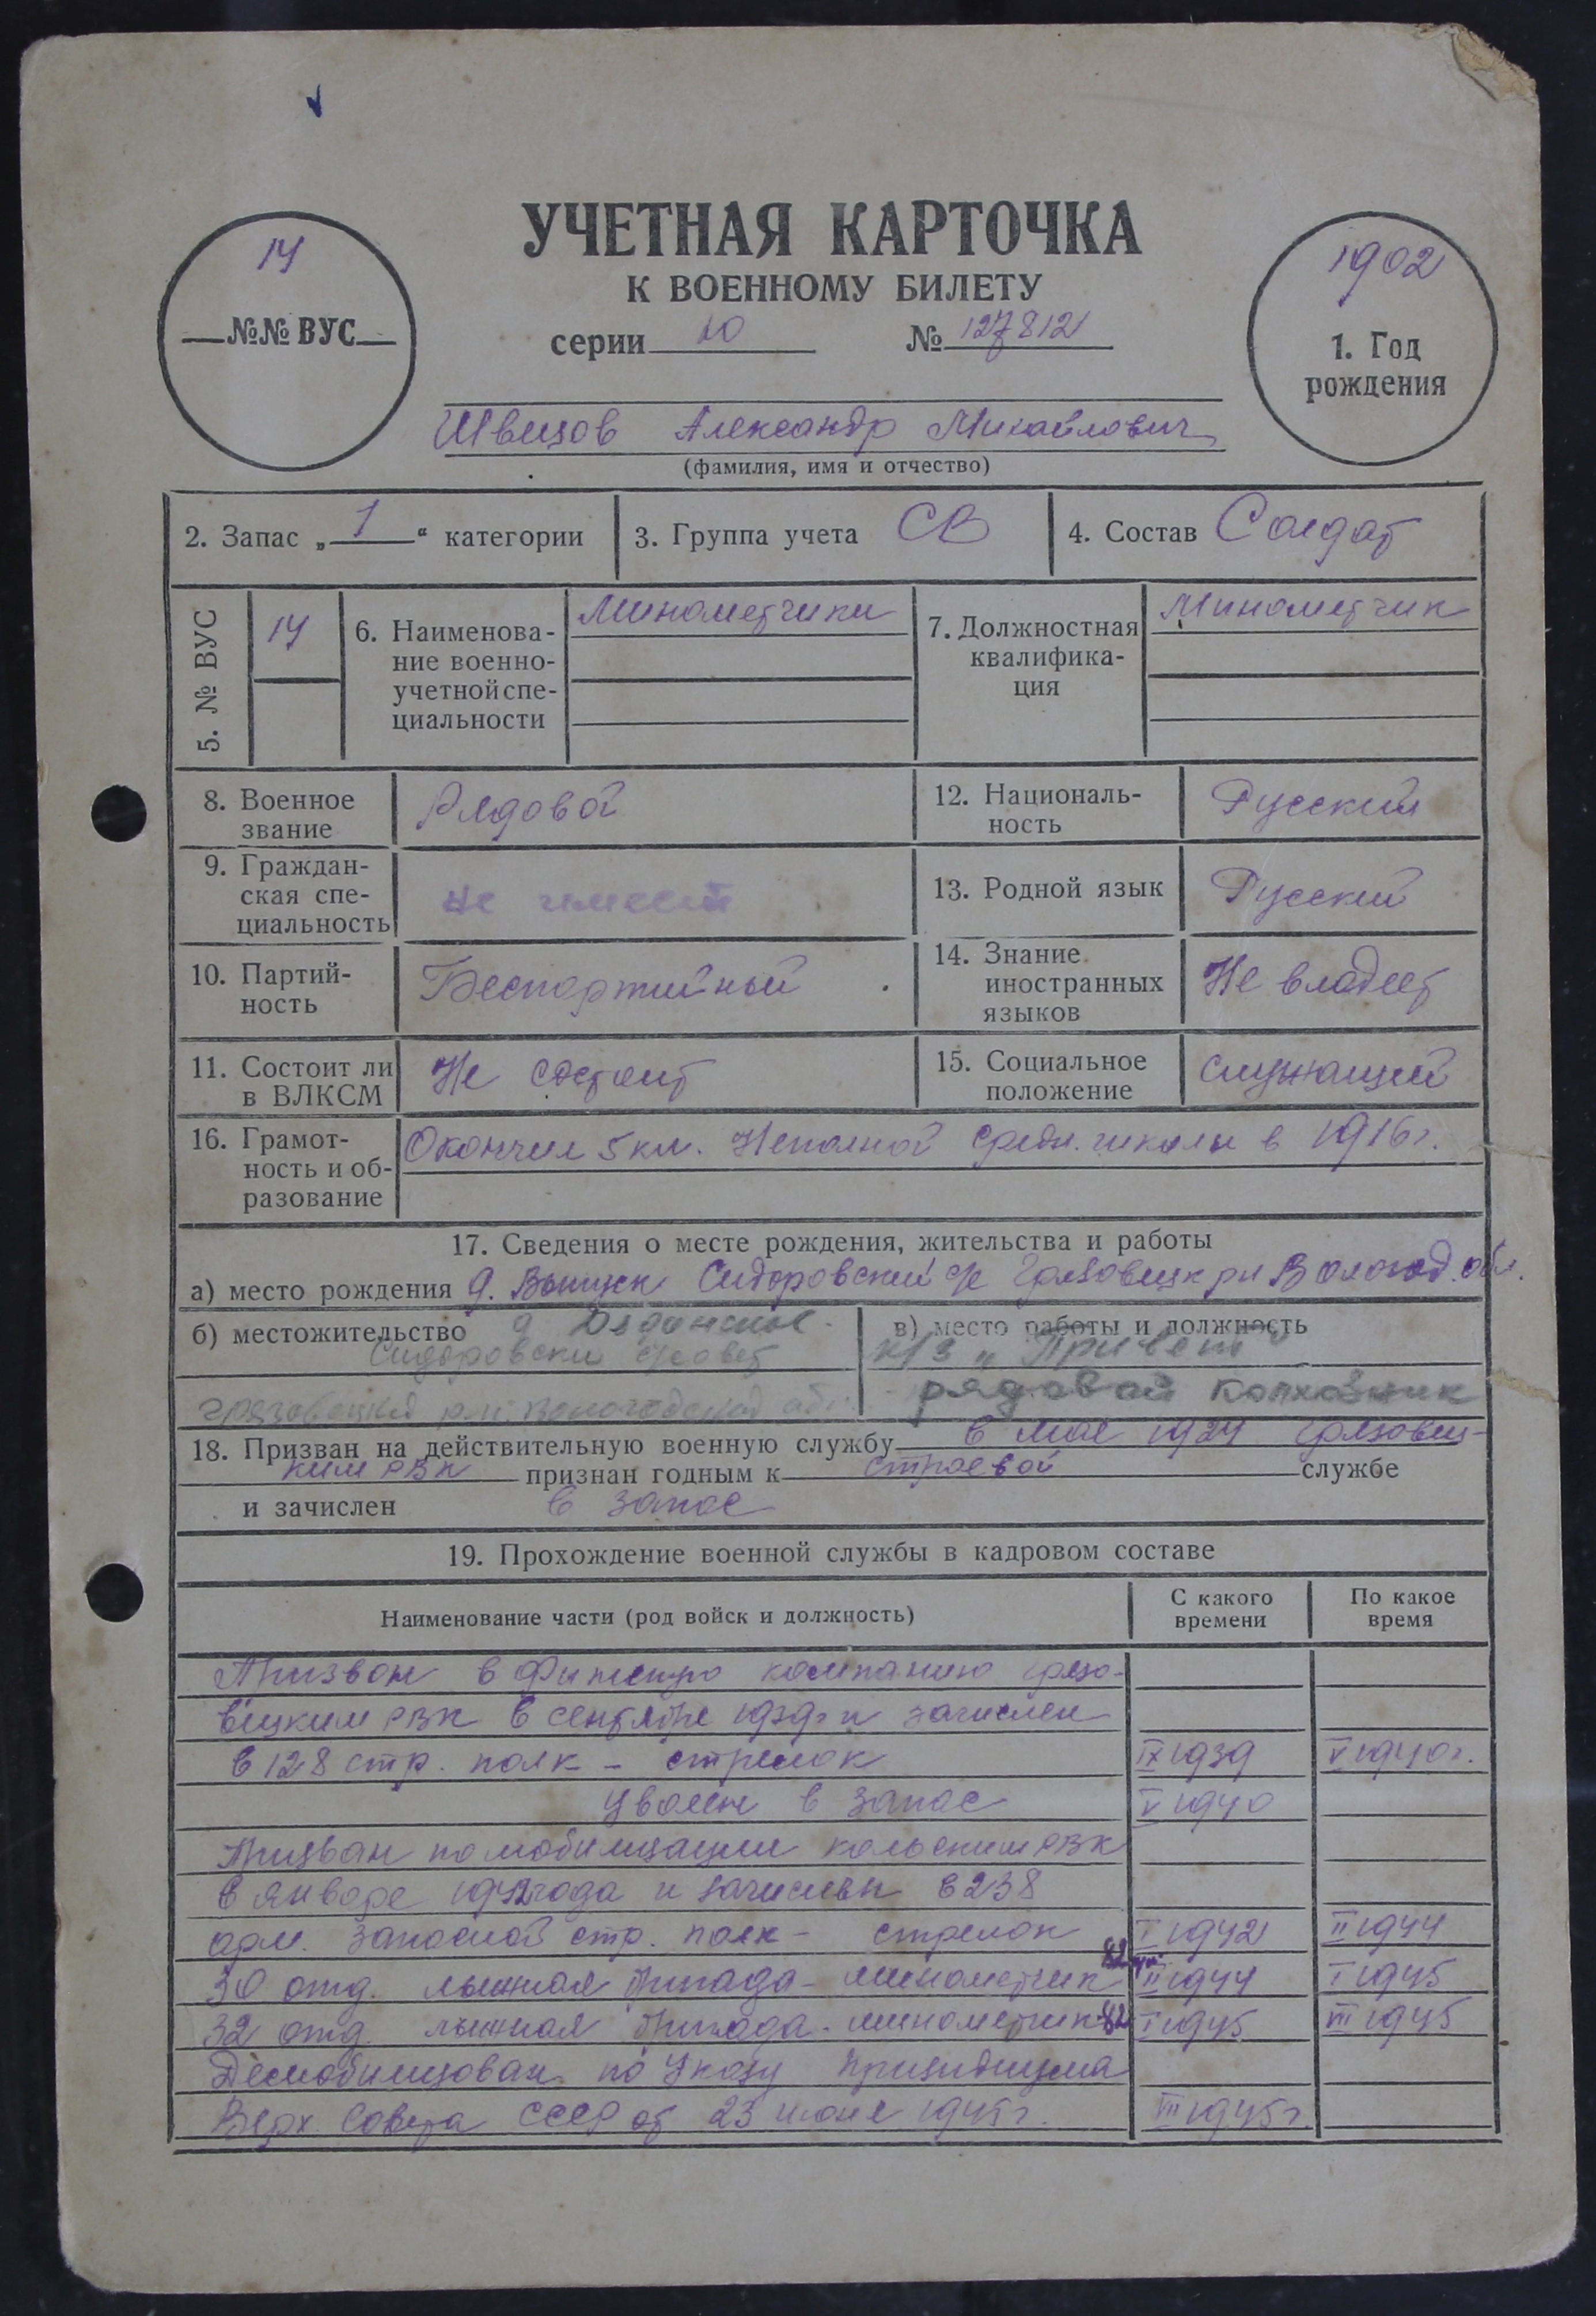 УЧЕТНАЯ КАРТОЧКА
К ВОЕННОМУ БИЛЕТУ
серии Ю № 127812
14
№№ ВУС
1902
1. Год
рождения
Швецов Александр Михайлович
(фамилия, имя и отчество)
2. Запас „1“ категории
3. Группа учета СВ
4. Состав Солдат
5. № ВУС
14
6. Наименова-
ние военно-
учетной спе-
циальности
Минометчики
7. Должностная
квалифика-
ция
Минометчик
8. Военное
звание
Рядовой
12. Националь-
ность
Русский
9. Граждан-
ская спе-
циальность
не имеет
13. Родной язык
Русский
10. Партий-
ность
Беспартийный
14. Знание
иностранных
языков
Не владеет
11. Состоит ли
в ВЛКСМ
Не состоит
15. Социальное
положение
служащий
16. Грамот-
ность и об-
разование
Окончил 5 кл. Неполной средн. школы в 1916 г.
17. Сведения о месте рождения, жительства и работы
а) место рождения д. Сидоровский с/с Грязовецк р-н Вологод. обл.
б) местожительство д
Сидоровски с/совет
грязовецкий р-н. Вологодской обл.
в) место работы и должность
к/з „Привет“
рядовой колхозник
18. Призван на действительную военную службу в мае 1924 Грязовец-
ким РВК признан годным к строевой службе
и зачислен в запас
19. Прохождение военной службы в кадровом составе
Наименование части (род войск и должность)
С какого
времени
По какое
время
Призван в Финскую компанию Грязо-
вецким РВК в сентябре 1939 г и зачислен
в 128 стр. полк - стрелок IX 1939 V 1940 г.
Уволен в запас V 1940
Призван по мобилизации кольским РВК
в январе 1942 года и зачислен в 238
арм. запасной стр. полк - стрелок I 1942 II 1944
30 отд. лыжная бригада - минометчик 82 II 1944 I 1945
32 отд. лыжная бригада - минометчик 82 I 1945 1945
Демобилизован по Указу Призидиума
Верх. Совета СССР от 23 июня 1945 г. 1945 г.